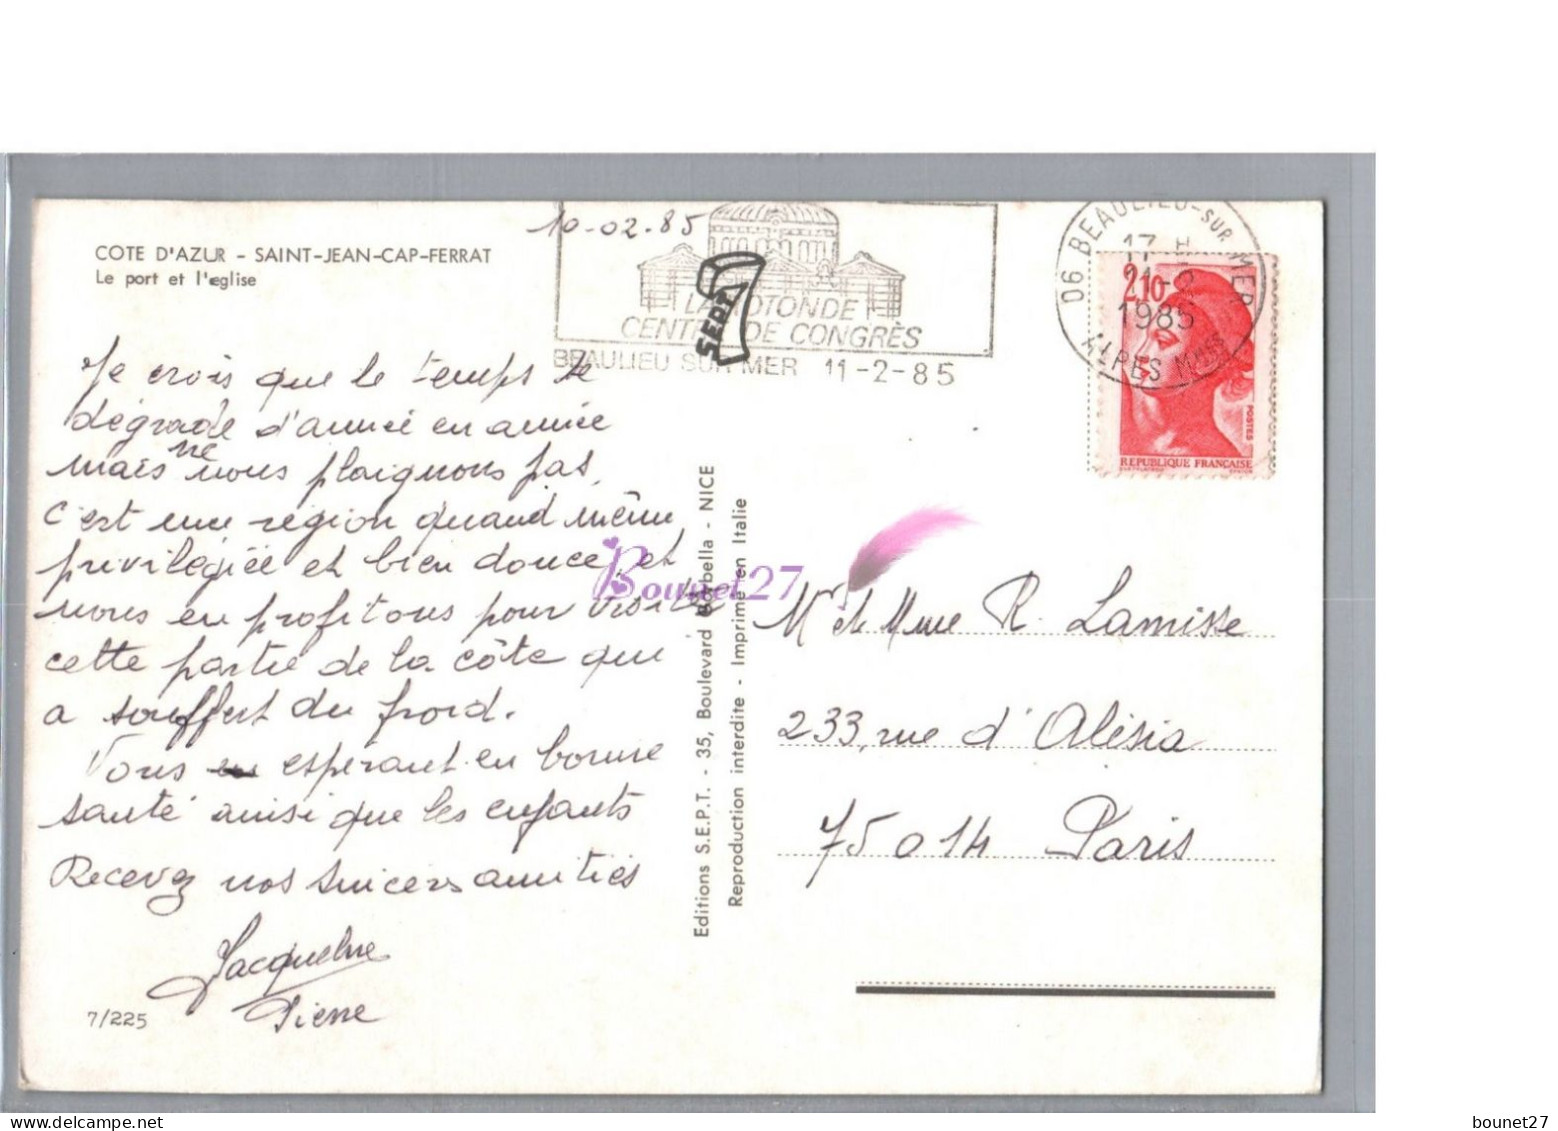 COTE D'AZUR - SAINT-JEAN-CAP-FERRAT
Le port et l'eglise
10-02-85
LA ROTONDE
CENTRE DE CONGRÈS
BEAULIEU SUR MER 11-2-85
SEPT
06 BEAULIEU-SUR-MER
17 H
11-2
1985
ALPES MMES
2,10
POSTES
REPUBLIQUE FRANÇAISE
Je crois que le temps se
dégrade d'année en année
mais ne nous plaignons pas,
c'est une région quand même
privilégiée et bien douce, et
nous en profitons pour visiter
cette partie de la côte qui
a souffert du froid.
Vous espérant en bonne
santé ainsi que les enfants
Recevez nos sincères amitiés
Jacqueline
Pierre
7/225
Editions S.E.P.T. - 35, Boulevard Gorbella - NICE
Reproduction interdite - Imprimé en Italie
Bounet27
Mr et Mme R. Lamisse
233, rue d'Alésia
75014 Paris
bounet27